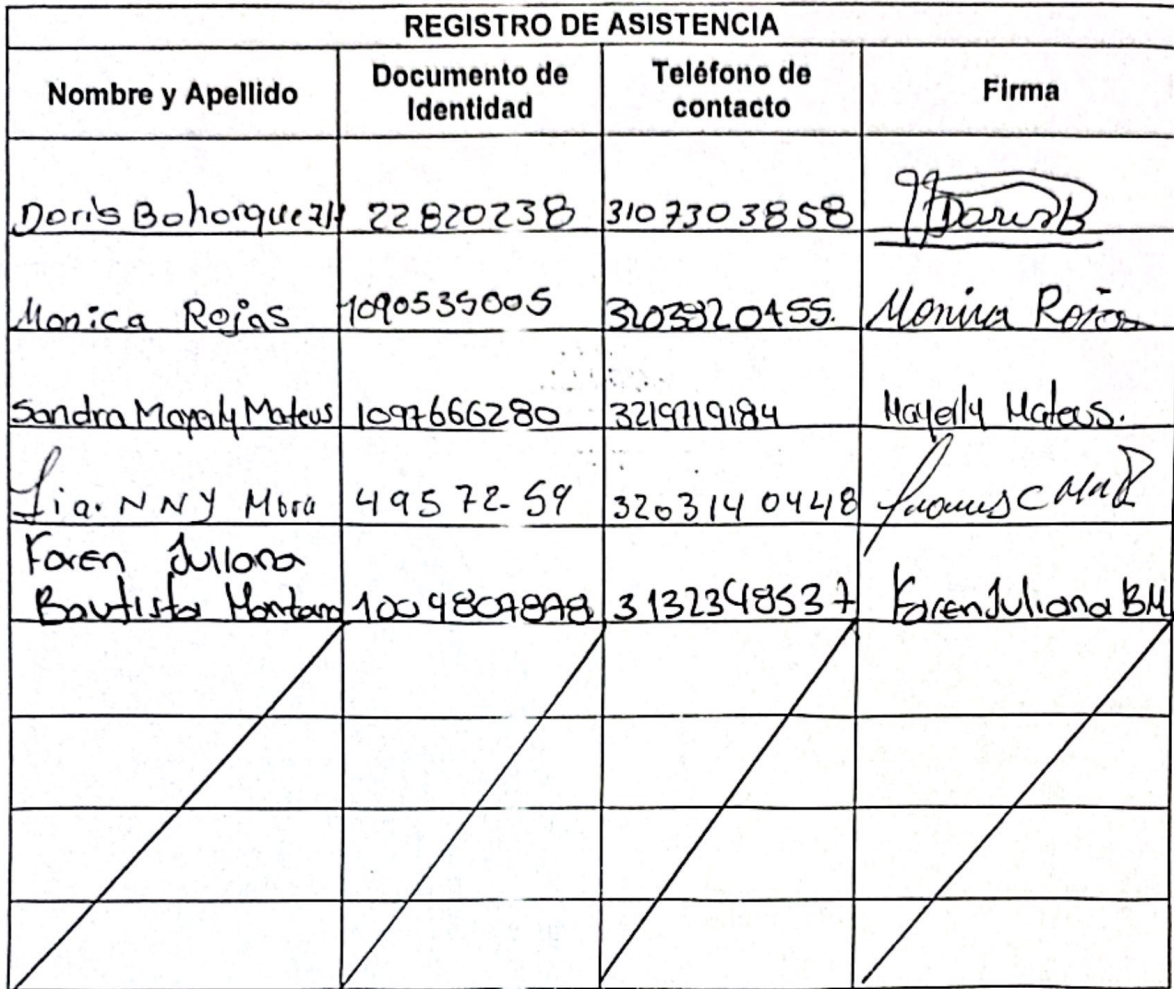 REGISTRO DE ASISTENCIA
Nombre y Apellido Documento de Identidad Teléfono de contacto Firma
Doris Bohorquez 22820238 3107303858 Doris B
Monica Rojas 1090535005 3203820455. Monica Rojas
Sandra Mayely Mateus 1097666280 3219719184 Mayelly Mateus.
NNY Mora 495 72-59 320314 0448
Karen Juliana
Bautista Montano 1009807878 3132348537 Karen Juliana BM